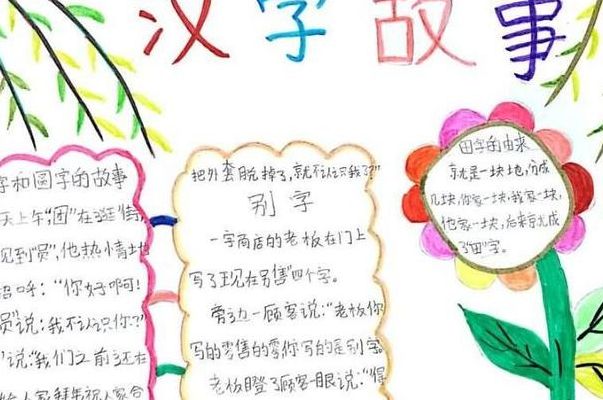 汉字故事
字和圆字的故事
天上午,"团"在逛街
见到"员",他热情地
招呼:"你好啊!
员"说:我不认识你?"
"说:"我们之前还在
给人家拜年祝人家合
把外套脱掉了,就不认识我了?"
别字
一字商店的老板在门上
写了现在另售"四个字。
旁边一顾客说:"老板你
写的零售的零你写的是别字
老板瞪了顾客一眼说:"得
田字的由来
就是一块地,分成
几块,你家一块,我家一块,
他家一块,后来就成
了"田"字。